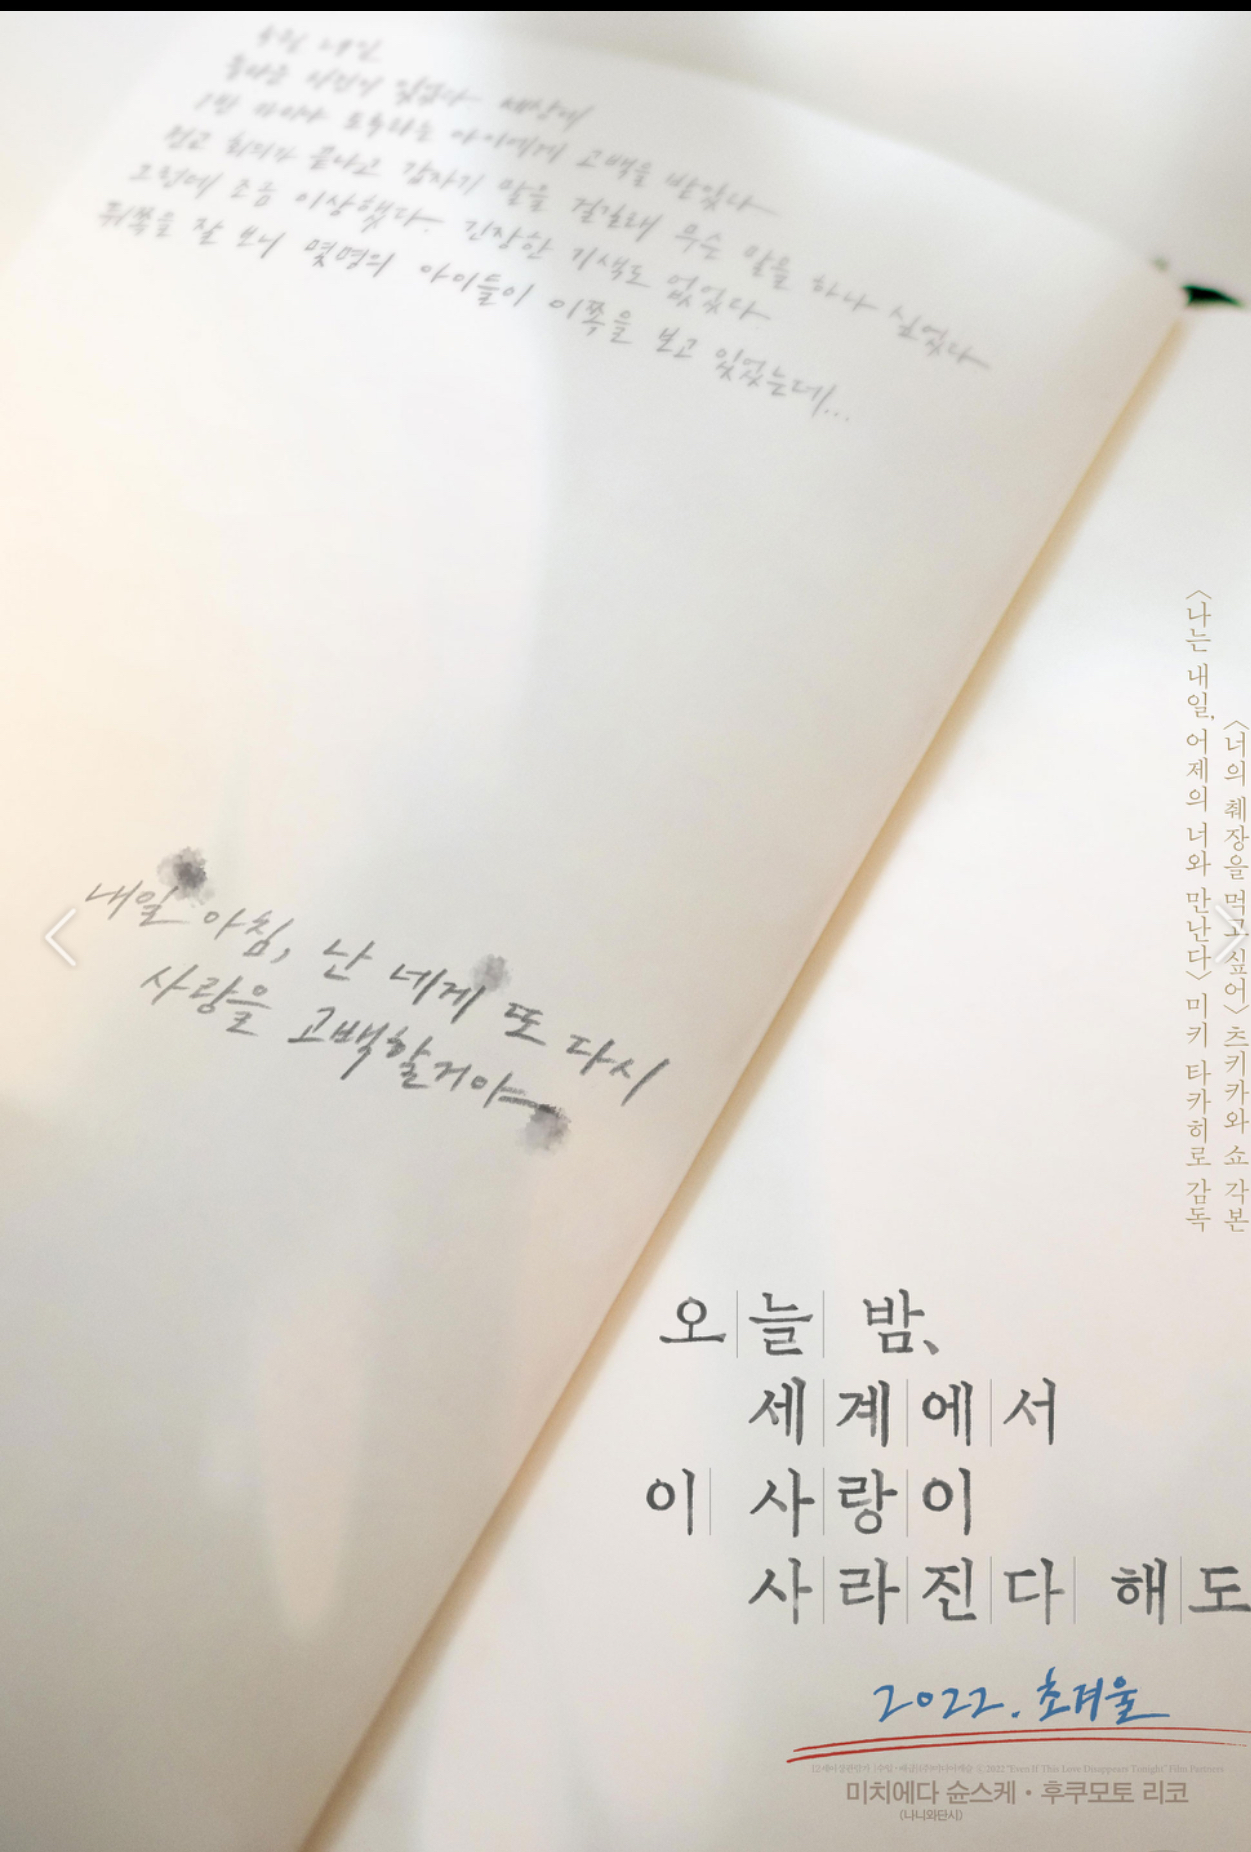 놀라운 사건이 있었다 세상에
1반 카미야 토루라는 아이에게 고백을 받았다
청고 회의가 끝나고 갑자기 말을 걸길래 무슨 말을 하나 싶었다
그런데 조금 이상했다. 긴장한 기색도 없었다.
뒤쪽을 잘 보니 몇명의 아이들이 이쪽을 보고 있었는데...
내일 아침, 난 네게 또 다시
사랑을 고백할거야
<너의 췌장을 먹고 싶어> 츠키카와 쇼 각본
<나는 내일, 어제의 너와 만난다> 미키 타카히로 감독
오늘 밤,
세계에서
이 사랑이
사라진다 해도
2022. 초겨울
12세이상관람가 ⓒ 2022 "Even If This Love Disappears Tonight" Film Partners
미치에다 슌스케 · 후쿠모토 리코
(나니와단시)